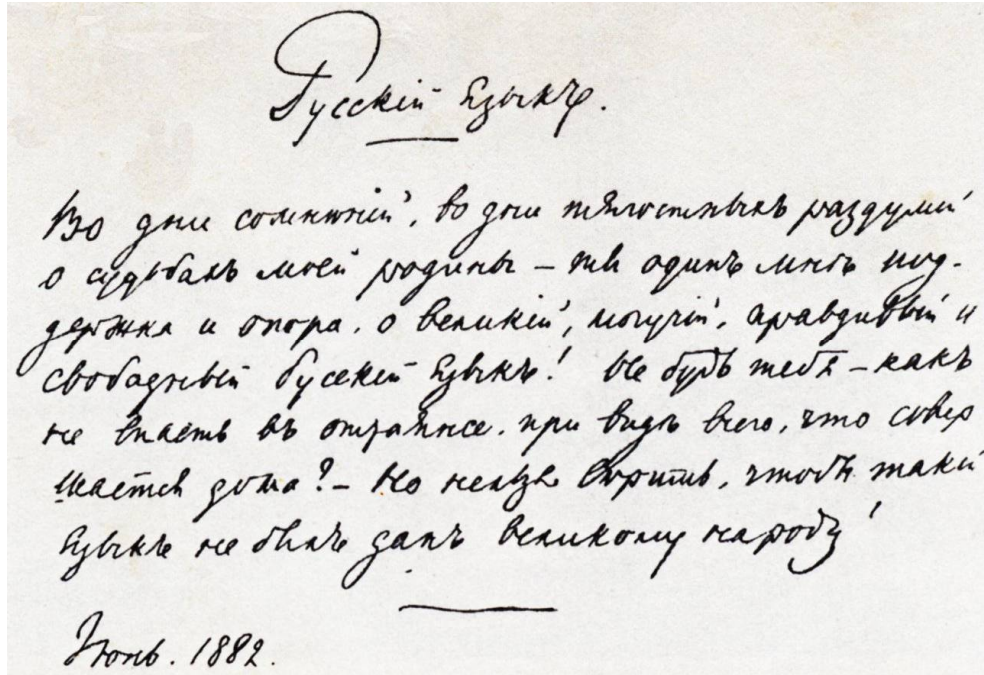 Русскій языкъ.
Во дни сомнѣній, во дни тягостныхъ раздумій
о судьбахъ моей родины – ты одинъ мнѣ под-
держка и опора, о великій, могучій, правдивый и
свободный русскій языкъ! Не будь тебя – какъ
не впасть въ отчаянье, при видѣ всего, что совер
шается дома? – Но нельзя вѣрить, чтобы такой
языкъ не былъ данъ великому народу!
Июнь. 1882.